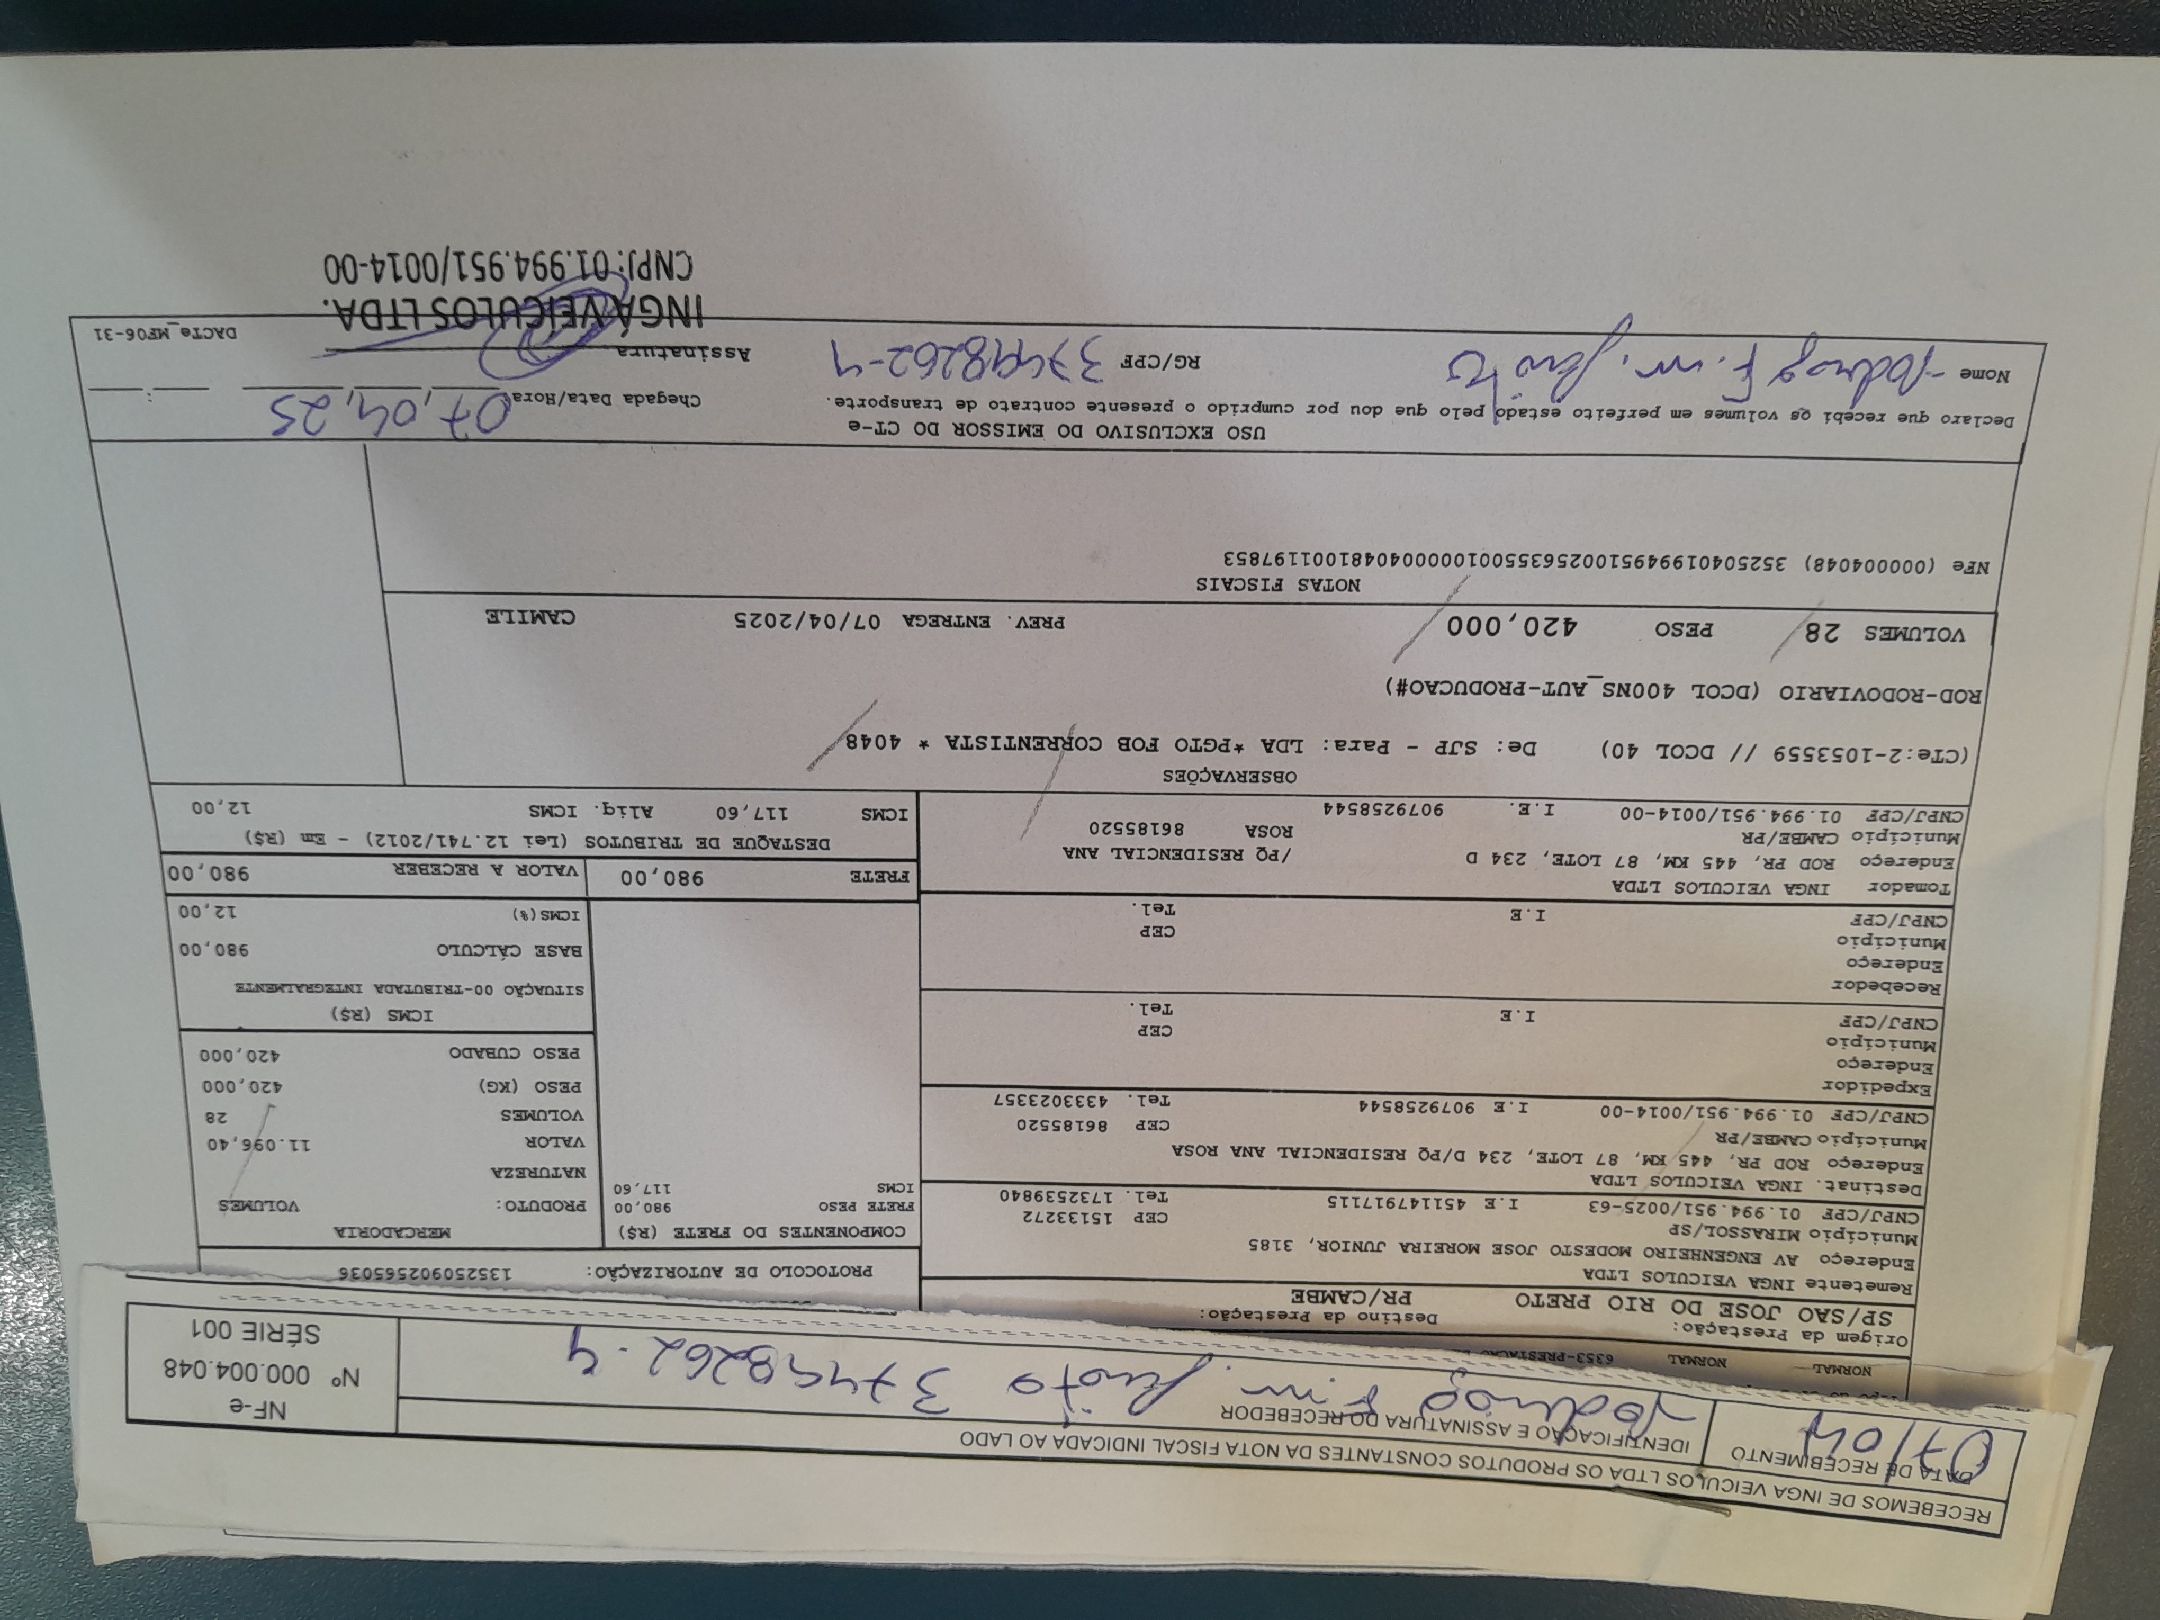 RECEBEMOS DE INGA VEICULOS LTDA OS PRODUTOS CONSTANTES DA NOTA FISCAL INDICADA AO LADO
DATA DE RECEBIMENTO
07/04
IDENTIFICAÇÃO E ASSINATURA DO RECEBEDOR
NF-e
Nº 000.004.048
SÉRIE 001
NORMAL NORMAL
Origem da Prestação:
SP/SAO JOSE DO RIO PRETO
Destino da Prestação:
PR/CAMBE
Remetente INGA VEICULOS LTDA
Endereço AV ENGENHEIRO MODESTO JOSE MOREIRA JUNIOR, 3185
Município MIRASSOL/SP CEP 15133272
CNPJ/CPF 01.994.951/0025-63 I.E 451147917115 Tel. 1732539840
Destinat. INGA VEICULOS LTDA
Endereço ROD PR, 445 KM, 87 LOTE, 234 D/PQ RESIDENCIAL ANA ROSA
Município CAMBE/PR CEP 86185520
CNPJ/CPF 01.994.951/0014-00 I.E 9079258544 Tel. 4333023357
Expedidor
Endereço
Município CEP
CNPJ/CPF I.E Tel.
Recebedor
Endereço
Município CEP
CNPJ/CPF I.E Tel.
Tomador INGA VEICULOS LTDA
Endereço ROD PR, 445 KM, 87 LOTE, 234 D /PQ RESIDENCIAL ANA
Município CAMBE/PR ROSA 86185520
CNPJ/CPF 01.994.951/0014-00 I.E. 9079258544
PROTOCOLO DE AUTORIZAÇÃO: 135250902565036
COMPONENTES DO FRETE (R$)
FRETE PESO 980,00
ICMS 117,60
MERCADORIA
PRODUTO: VOLUMES
NATUREZA
VALOR 11.096,40
VOLUMES 28
PESO (KG) 420,000
PESO CUBADO 420,000
ICMS (R$)
SITUAÇÃO 00-TRIBUTADA INTEGRALMENTE
BASE CÁLCULO 980,00
ICMS(%) 12,00
FRETE 980,00 VALOR A RECEBER 980,00
DESTAQUE DE TRIBUTOS (Lei 12.741/2012) - Em (R$)
ICMS 117,60 Aliq. ICMS 12,00
OBSERVAÇÕES
(CTe:2-1053559 // DCOL 40) De: SJP - Para: LDA *PGTO FOB CORRENTISTA * 4048
ROD-RODOVIARIO (DCOL 400NS_AUT-PRODUCAO#)
VOLUMES 28 PESO 420,000 PREV. ENTREGA 07/04/2025 CAMILE
NOTAS FISCAIS
NFe (000004048) 35250401994951002563550010000040481001197853
USO EXCLUSIVO DO EMISSOR DO CT-e
Declaro que recebi os volumes em perfeito estado pelo que dou por cumprido o presente contrato de transporte.
Chegada Data/Hora 07,04,25
Nome
RG/CPF
Assinatura
DACTe_MF06-31
INGÁ VEICULOS LTDA.
CNPJ: 01.994.951/0014-00